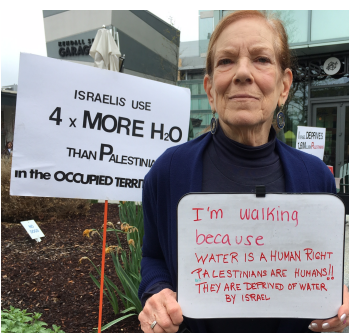 KENDALL
GARAGE
ISRAELIS USE
4 x MORE H2O
THAN PALESTINIA
in the OCCUPIED TERRIT
DEPRIVES
I'm walking
because
WATER IS A HUMAN RIGHT
PALESTINIANS ARE HUMANS!!
THEY ARE DEPRIVED OF WATER
BY ISRAEL